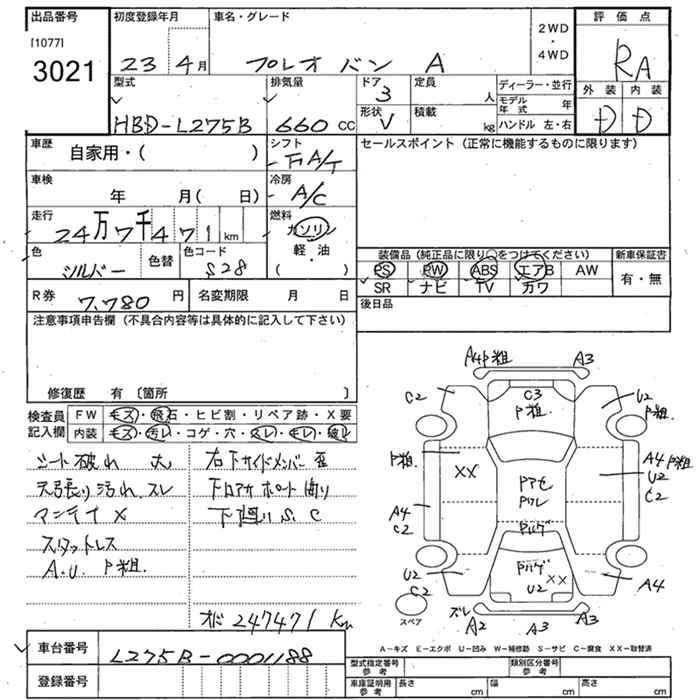 出品番号 初度登録年月 車名・グレード 2WD・4WD 評価点
[1077]
3021 23 4月 プレオ バン A RA
型式 排気量 ドア 定員 ディーラー・並行 外装 内装
3 人 モデル年式 年
形状 積載
HBD-L275B 660 CC V kg ハンドル 左・右 D D
車歴 シフト セールスポイント（正常に機能するものに限ります）
自家用・（ ） F A/T
車検 冷房
年 月（ 日） A/C
走行 燃料
24万7千471km ガソリン
色 色替 色コード 軽・油 装備品（純正品に限り○をつけてください） 新車保証書
シルバー S28 （ ・ ） PS PW ABS エアB AW 有・無
SR ナビ TV カワ
R券 7,780円 名変期限 月 日 後日品
注意事項申告欄（不具合内容等は具体的に記入して下さい）
修復歴 有 〔箇所 〕
検査員記入欄 FW キズ・飛石・ヒビ割・リペア跡・X要
内装 キズ・汚レ・コゲ・穴・スレ・キレ・破レ
シート破れ 大 右下サイドメンバー 歪
天張り汚れ、スレ 下回り S、C
マンテイX
スタットレス
A.U P粗
オド 247471 Km
A4 P粗 A3
C2 C3 U2
P粗 P粗
P粗 XX A4 P粗
U2
C2
A4
C2
U2 XX A4
C2 U2
スペア ズレ A2 A3 A3
A-キズ E-エクボ U-凹み W-補修跡 S-サビ C-腐食 XX-取替済
車台番号 L275B-0001188
型式指定番号 参考 類別区分番号 参考
登録番号 車庫証明用 参考 長さ cm 幅 cm 高さ cm